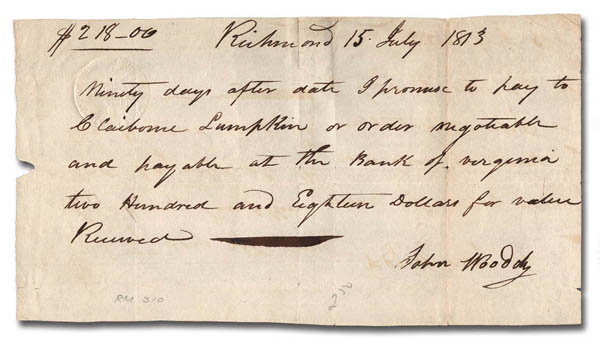 $218-00 Richmond 15 July 1813
Ninety days after date I promise to pay to
Claiborne Lumpkin or order negotiable
and payable at the Bank of Virginia
two Hundred and Eighteen Dollars for value
Received
John Woddy
RM 310
250